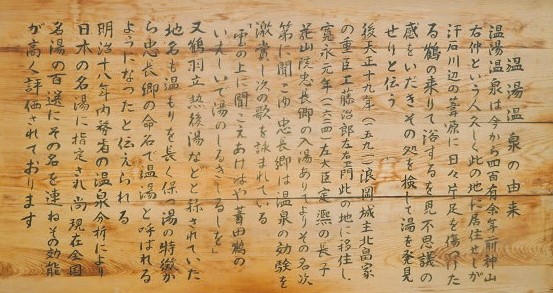 温湯温泉の由来
温湯温泉は今から四百有余年前神山
右仲という人久しく此の地に居住せしが
汗石川辺の葦原に日々片足を傷つけた
る鶴の来りて浴するを見不思議の
感をいだきその処を検して湯を発見
せりと伝う
後天正十九年(一五九一)浪岡城主北畠家
の重臣工藤治郎左右門此の地に移住し、
寛永元年(一六二四)左大臣定熙の長子
花山院忠長卿の入湯ありてよりその名次
第に聞こゆ 忠長卿は温泉の効験を
激賞し次の歌を詠まれている
「雲の上に聞こえあげばや 葦田鶴の
いえしいで湯のしるきしるしを」
又鶴羽立 熱後湯などと称されていた
地名も温もりを長く保つ湯の特徴か
ら忠長卿の命名で温湯と呼ばれる
ようになったと伝えられる
明治十八年内務省の温泉分析により
日本の名湯に指定され 尚 現在全国
名湯の百選にその名を連ねその効能
が高く評価されております